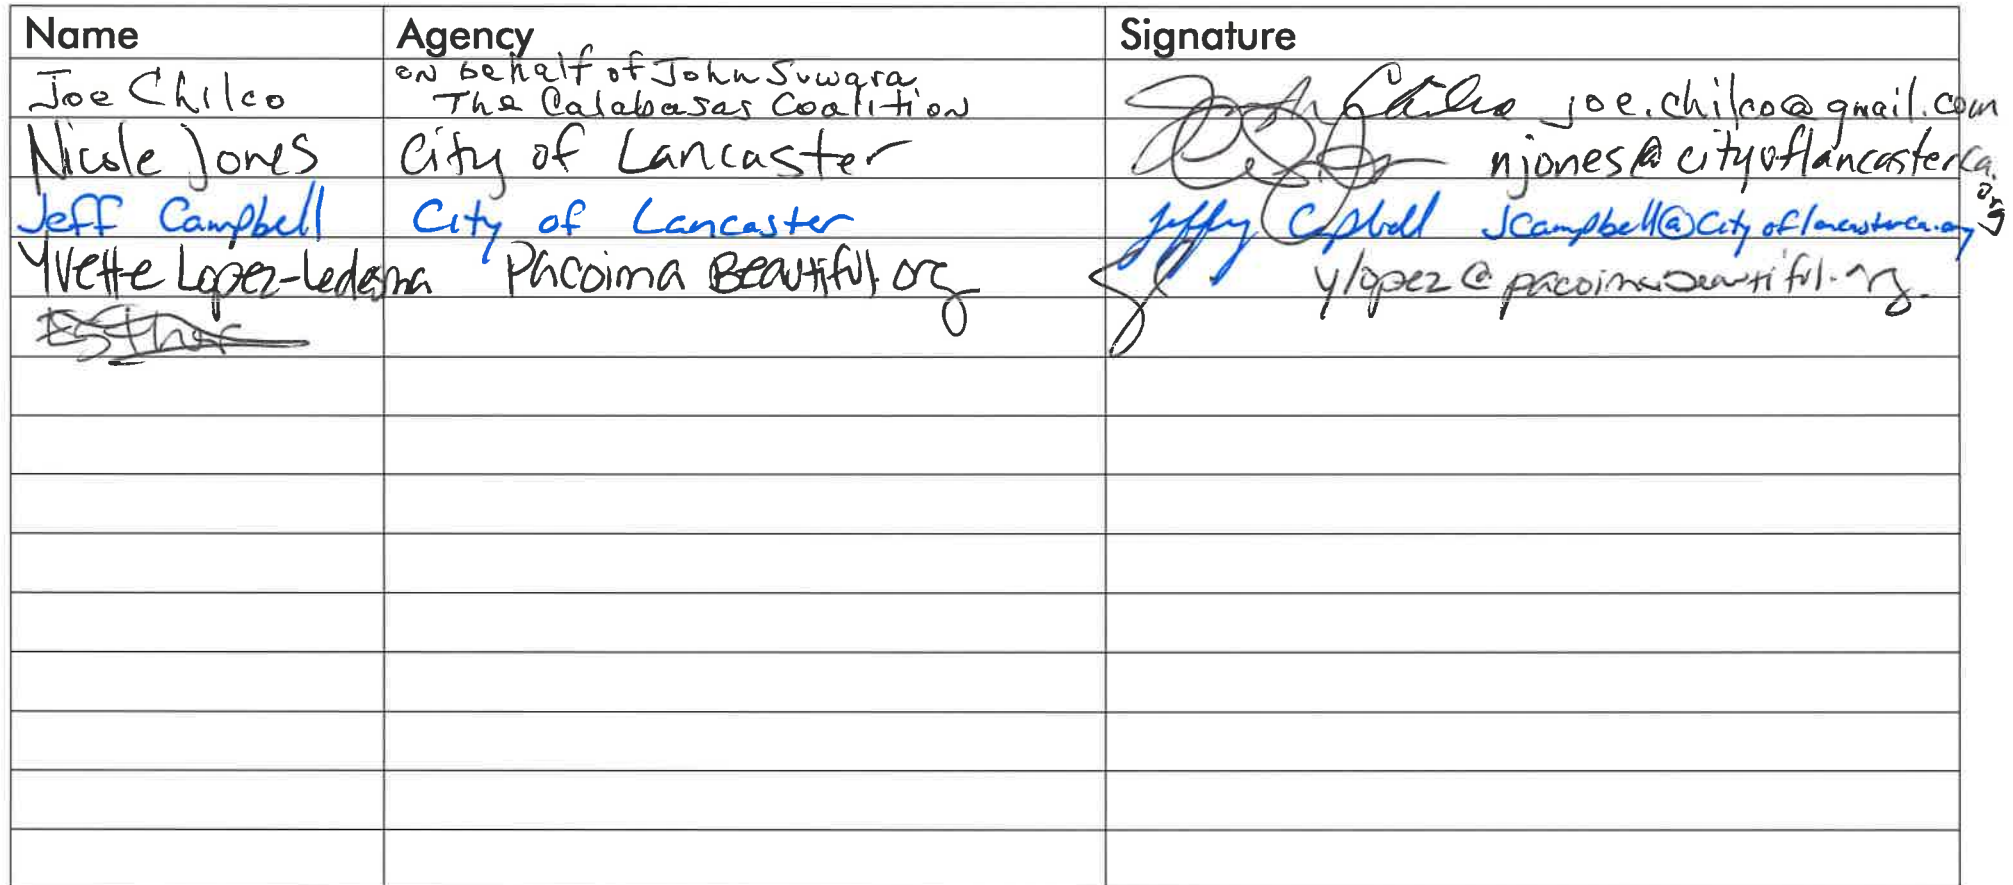 Name Agency Signature
on behalf of John Suwara
Joe Chilco The Calabasas Coalition joe.chilco@gmail.com
Nicole Jones City of Lancaster njones@cityoflancasterca.org
Jeff Campbell City of Lancaster Jeffry Campbell JCampbell@Cityoflancasterca.org
Yvette Lopez-Ledesma Pacoima Beautiful.org ylopez@pacoimabeautiful.org
Esther